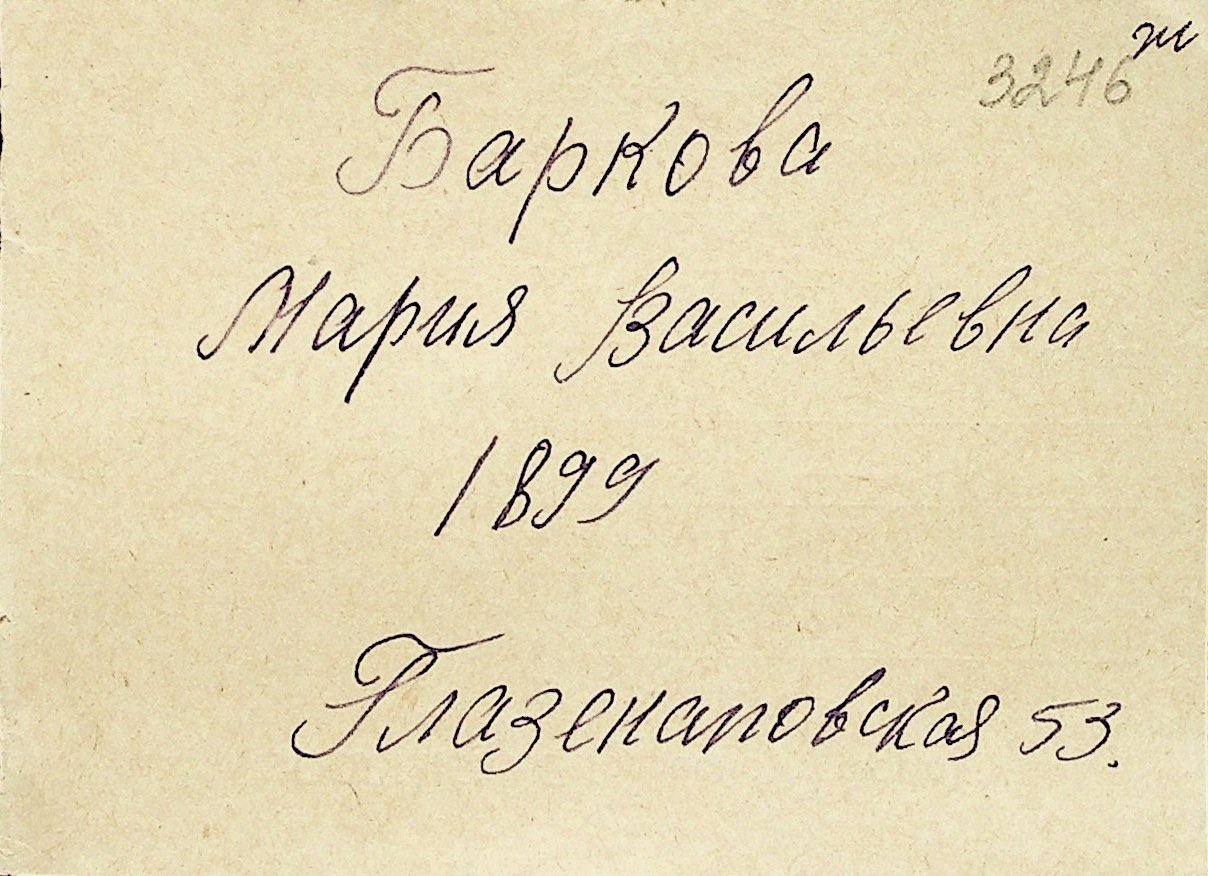 ж
3246
Баркова
Мария Васильевна
1899
Глазенаповская 53.